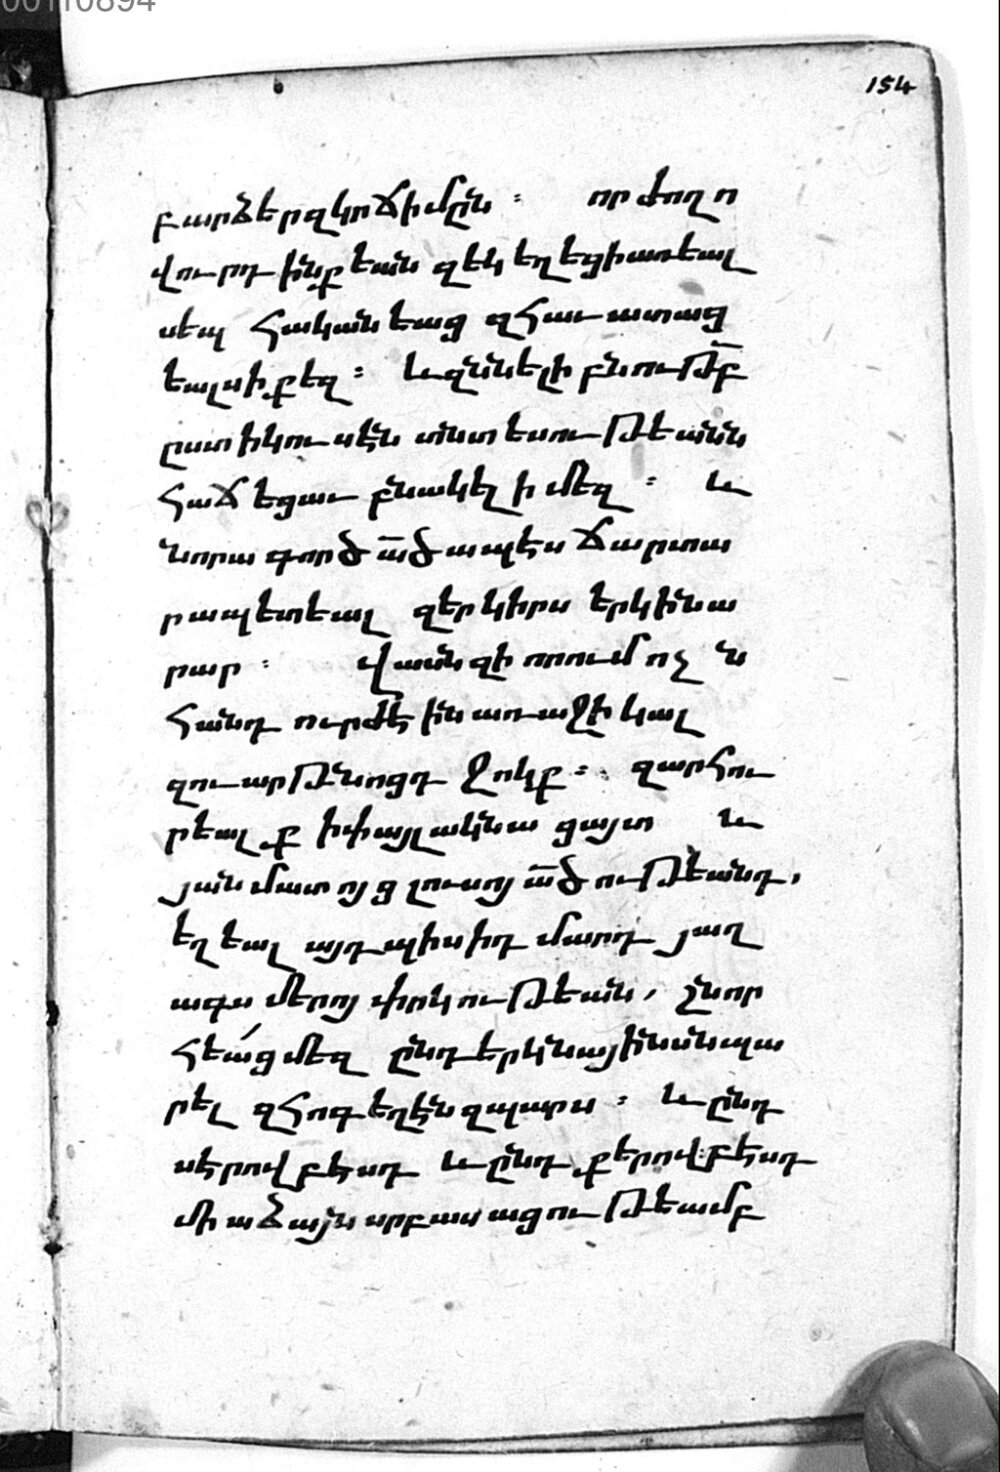 00110894
154
բարձերզկրճիմըն : որժողո
վուրդ ինքեան զեկեղեցիառեալ
սեպհականեաց զհաւատաց
եալսիքէզ : և զննելի բնու՟թբ
ըստիկուսէն տնտեսութեանն
հաճեցաւ բնակել ի մեզ : և
նորագործ ա՟ծապէս ճարտա
րապետեալ զերկիրս երկինա
րար : վասն զի որում ոչ հ
հանդուրժէին առաջի կալ
զուարթնոցդ ջոկք : զարհու
րեալք ի փայլակնա ցայտ և
յանմատոյց լուսոյ ա՟ծութեանդ,
եղեալ այդպիսիդ մարդ յաղ
ագս մերոյ փրկութեան, շնոր
հեա՛ց մեզ ընդ երկնայինսն պա
րել զհոգեղէն զպարս : և ընդ
սէրովբէսդ և ընդ քերովբէսդ
միաձայն սրբասացութեամբ